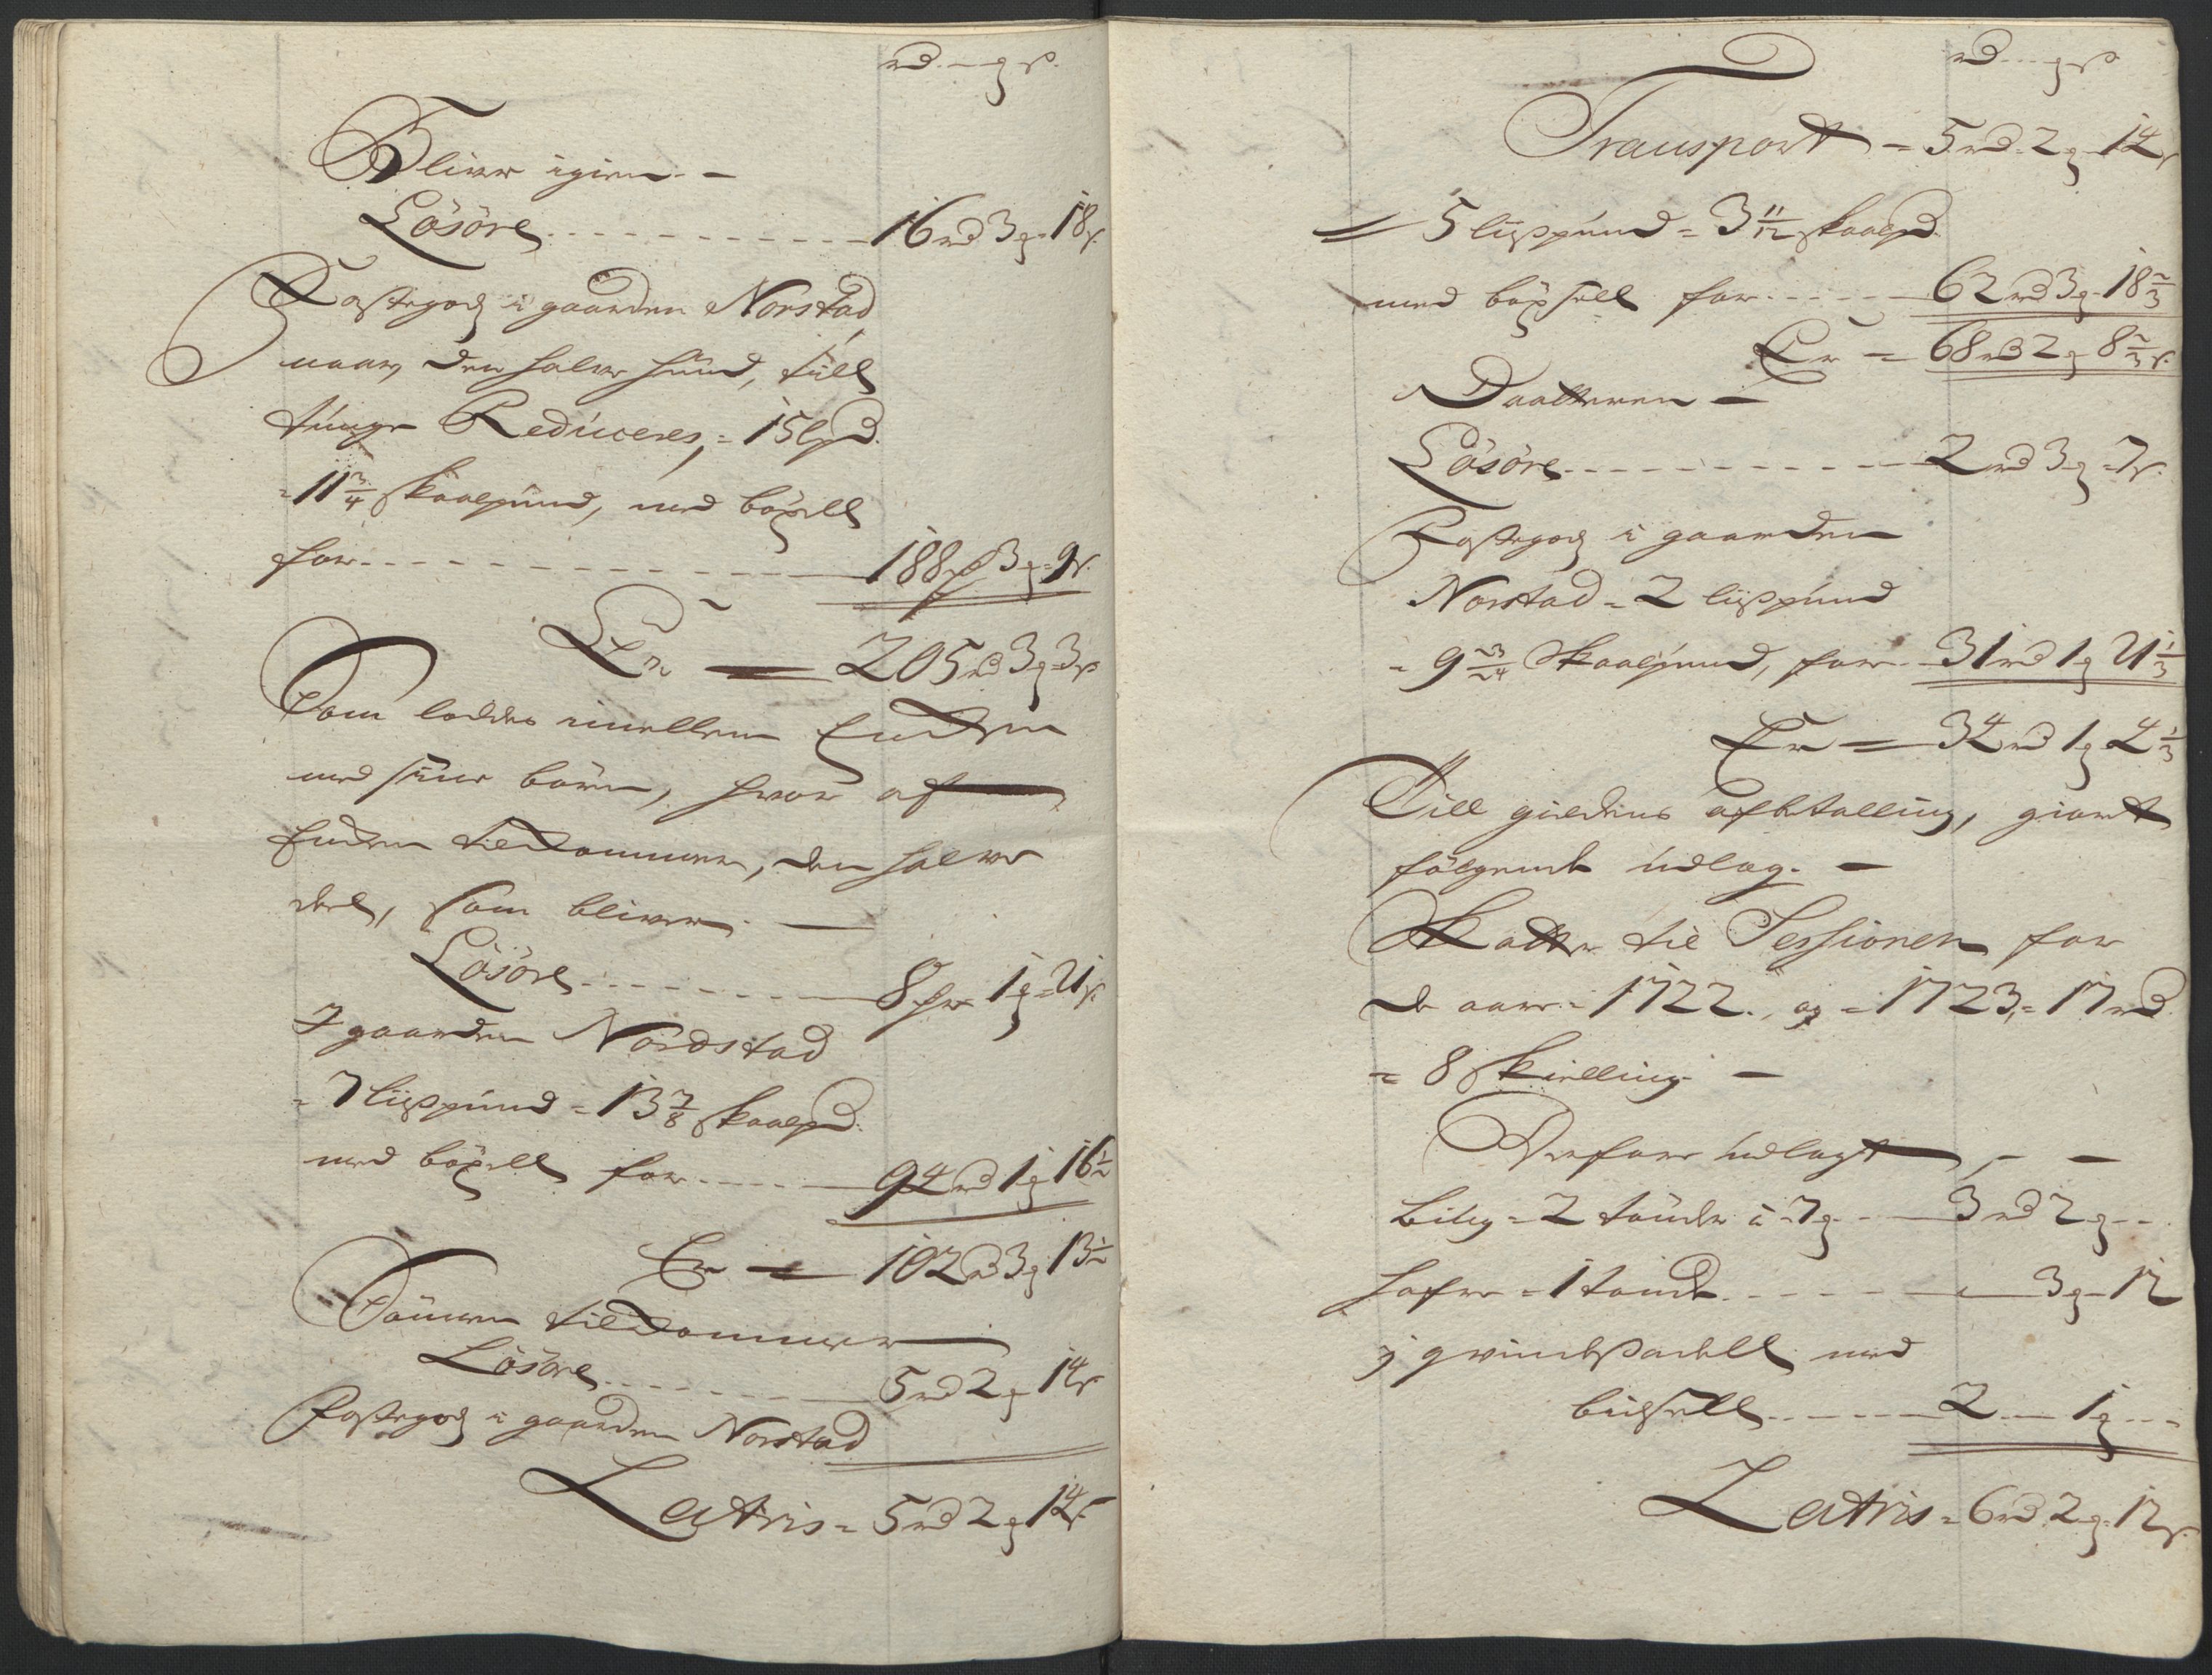 rd. — q s.
Bliver igien. —
Lösöre - - - - - - - - - 16 rd 3 q = 18 s.
Jordegods i gaarden Norstad
naar den halve hund, till
tünge Reduceres, = 15 lpd.
= 11 3/4 skaalpund, med böxell
for - - - - - - - - - 188 rd 3 q = 9 s.
Er — 205 rd 3 q = 3 s
Som loddes imellem Enchen
med sine börn, hvor af
Enchen tilkommer, den halve
deel, som bliver. —
Lösöre - - - - - - - 8 1 q = 21 s.
I gaarden Nordstad
= 7 lispund = 13 7/8 skaalpd.
med böxell for - - - - 94 rd 1 q 16 1/2
Er — 102 rd 3 q 13 1/2
Sönnen tilkommer
Lösöre - - - - - - - 5 rd 2 q 14 s
Jordegods i gaarden Norstad
Latris = 5 rd 2 q 14 s.
rd - - - q s
Transport = 5 rd = 2 q = 14 s
= 5 lispund = 3 11/12 skaalpd.
med böxsell for - - - - 62 rd 3 q = 18 2/3
Er = 68 rd 2 q 8 2/3 s.
Daatteren —
Lösöre - - - - - - - - - 2 rd 3 q = 7 s.
Jordegods i gaarden
Norstad = 2 lispund
= 9 23/24 Skaalpund, for - - 31 rd 1 q 21 1/3
Er = 34 rd 1 q 4 1/3
Till gieldens afbetalling, giort
fölgende udlag. —
Skatter til Sessionen for
de aar = 1722. og = 1723, = 17 rd.
= 8 Skielling —
Derfore udlagt, — —
Biug = 2 tönder à 7 q - - - 3 rd 2 q - -
hafre = 1 tönde - - - - - - 3 q - 12
j qvindesadell med
bidsell - - - - - - 2 - - 1 q - - -
Latris = 6 rd 2 q = 12 s.